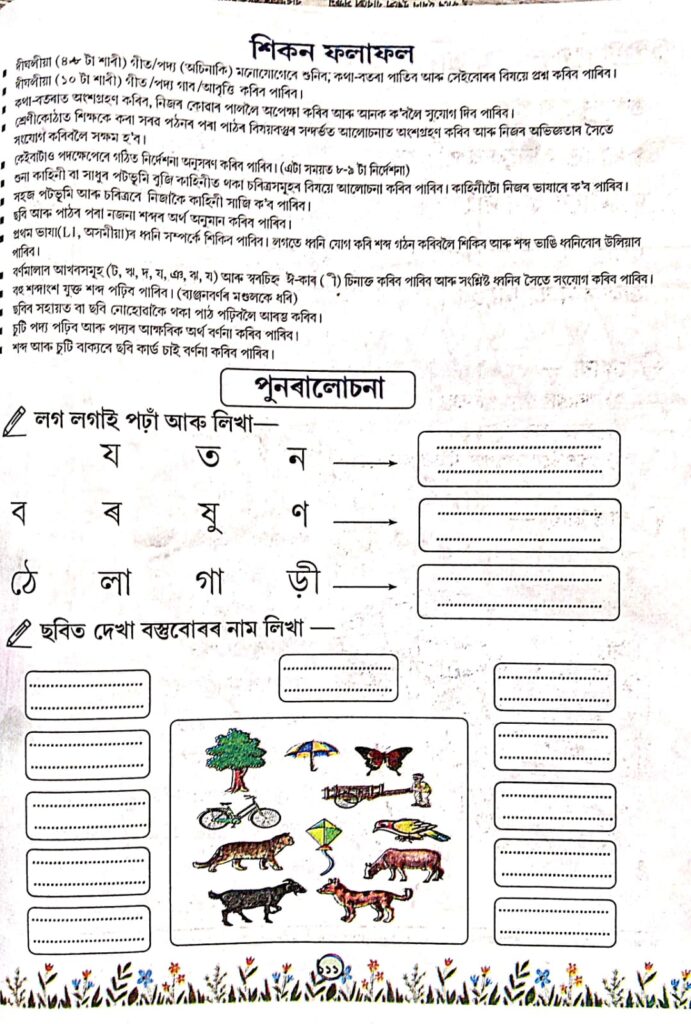 শিকন ফলাফল
দীঘলীয়া (৪-৮ টা শাৰী) গীত/পদ্য (অচিনাকি) মনোযোগেৰে শুনিব; কথা-বতৰা পাতিব আৰু সেইবোৰৰ বিষয়ে প্ৰশ্ন কৰিব পাৰিব।
দীঘলীয়া (১০ টা শাৰী) গীত/পদ্য গাব/আবৃত্তি কৰিব পাৰিব।
কথা-বতৰাত অংশগ্ৰহণ কৰিব, নিজৰ কোৱাৰ পাললৈ অপেক্ষা কৰিব আৰু আনক ক'বলৈ সুযোগ দিব পাৰিব।
শ্ৰেণীকোঠাত শিক্ষকে কৰা সৰৱ পঠনৰ পৰা পাঠৰ বিষয়বস্তুৰ সন্দৰ্ভত আলোচনাত অংশগ্ৰহণ কৰিব আৰু নিজৰ অভিজ্ঞতাৰ সৈতে
সংযোগ কৰিবলৈ সক্ষম হ'ব।
কেইবাটাও পদক্ষেপেৰে গঠিত নিৰ্দেশনা অনুসৰণ কৰিব পাৰিব। (এটা সময়ত ৮-৯ টা নিৰ্দেশনা)
শুনা কাহিনী বা সাধুৰ পটভূমি বুজি কাহিনীত থকা চৰিত্ৰসমূহৰ বিষয়ে আলোচনা কৰিব পাৰিব। কাহিনীটো নিজৰ ভাষাৰে ক'ব পাৰিব।
সহজ পটভূমি আৰু চৰিত্ৰৰে নিজাকৈ কাহিনী সাজি ক'ব পাৰিব।
ছবি আৰু পাঠৰ পৰা নজনা শব্দৰ অৰ্থ অনুমান কৰিব পাৰিব।
প্ৰথম ভাষা(L1, অসমীয়া)ৰ ধ্বনি সম্পৰ্কে শিকিব পাৰিব। লগতে ধ্বনি যোগ কৰি শব্দ গঠন কৰিবলৈ শিকিব আৰু শব্দ ভাঙি ধ্বনিবোৰ উলিয়াব
পাৰিব।
বৰ্ণমালাৰ আখৰসমূহ (ট, ঋ, দ, য, ঞ, ঝ, য) আৰু স্বৰচিহ্ন ঈ-কাৰ ( ী) চিনাক্ত কৰিব পাৰিব আৰু সংশ্লিষ্ট ধ্বনিৰ সৈতে সংযোগ কৰিব পাৰিব।
বহু শব্দাংশ যুক্ত শব্দ পঢ়িব পাৰিব। (ব্যঞ্জনবৰ্ণৰ মণ্ডলকে ধৰি)
ছবিৰ সহায়ত বা ছবি নোহোৱাকৈ থকা পাঠ পঢ়িবলৈ আৰম্ভ কৰিব।
চুটি পদ্য পঢ়িব আৰু পদ্যৰ আক্ষৰিক অৰ্থ বৰ্ণনা কৰিব পাৰিব।
শব্দ আৰু চুটি বাক্যৰে ছবি কাৰ্ড চাই বৰ্ণনা কৰিব পাৰিব।
পুনৰালোচনা
লগ লগাই পঢ়াঁ আৰু লিখা—
য ত ন
ব ৰ ষু ণ
ঠে লা গা ড়ী
ছবিত দেখা বস্তুবোৰৰ নাম লিখা —
১১১